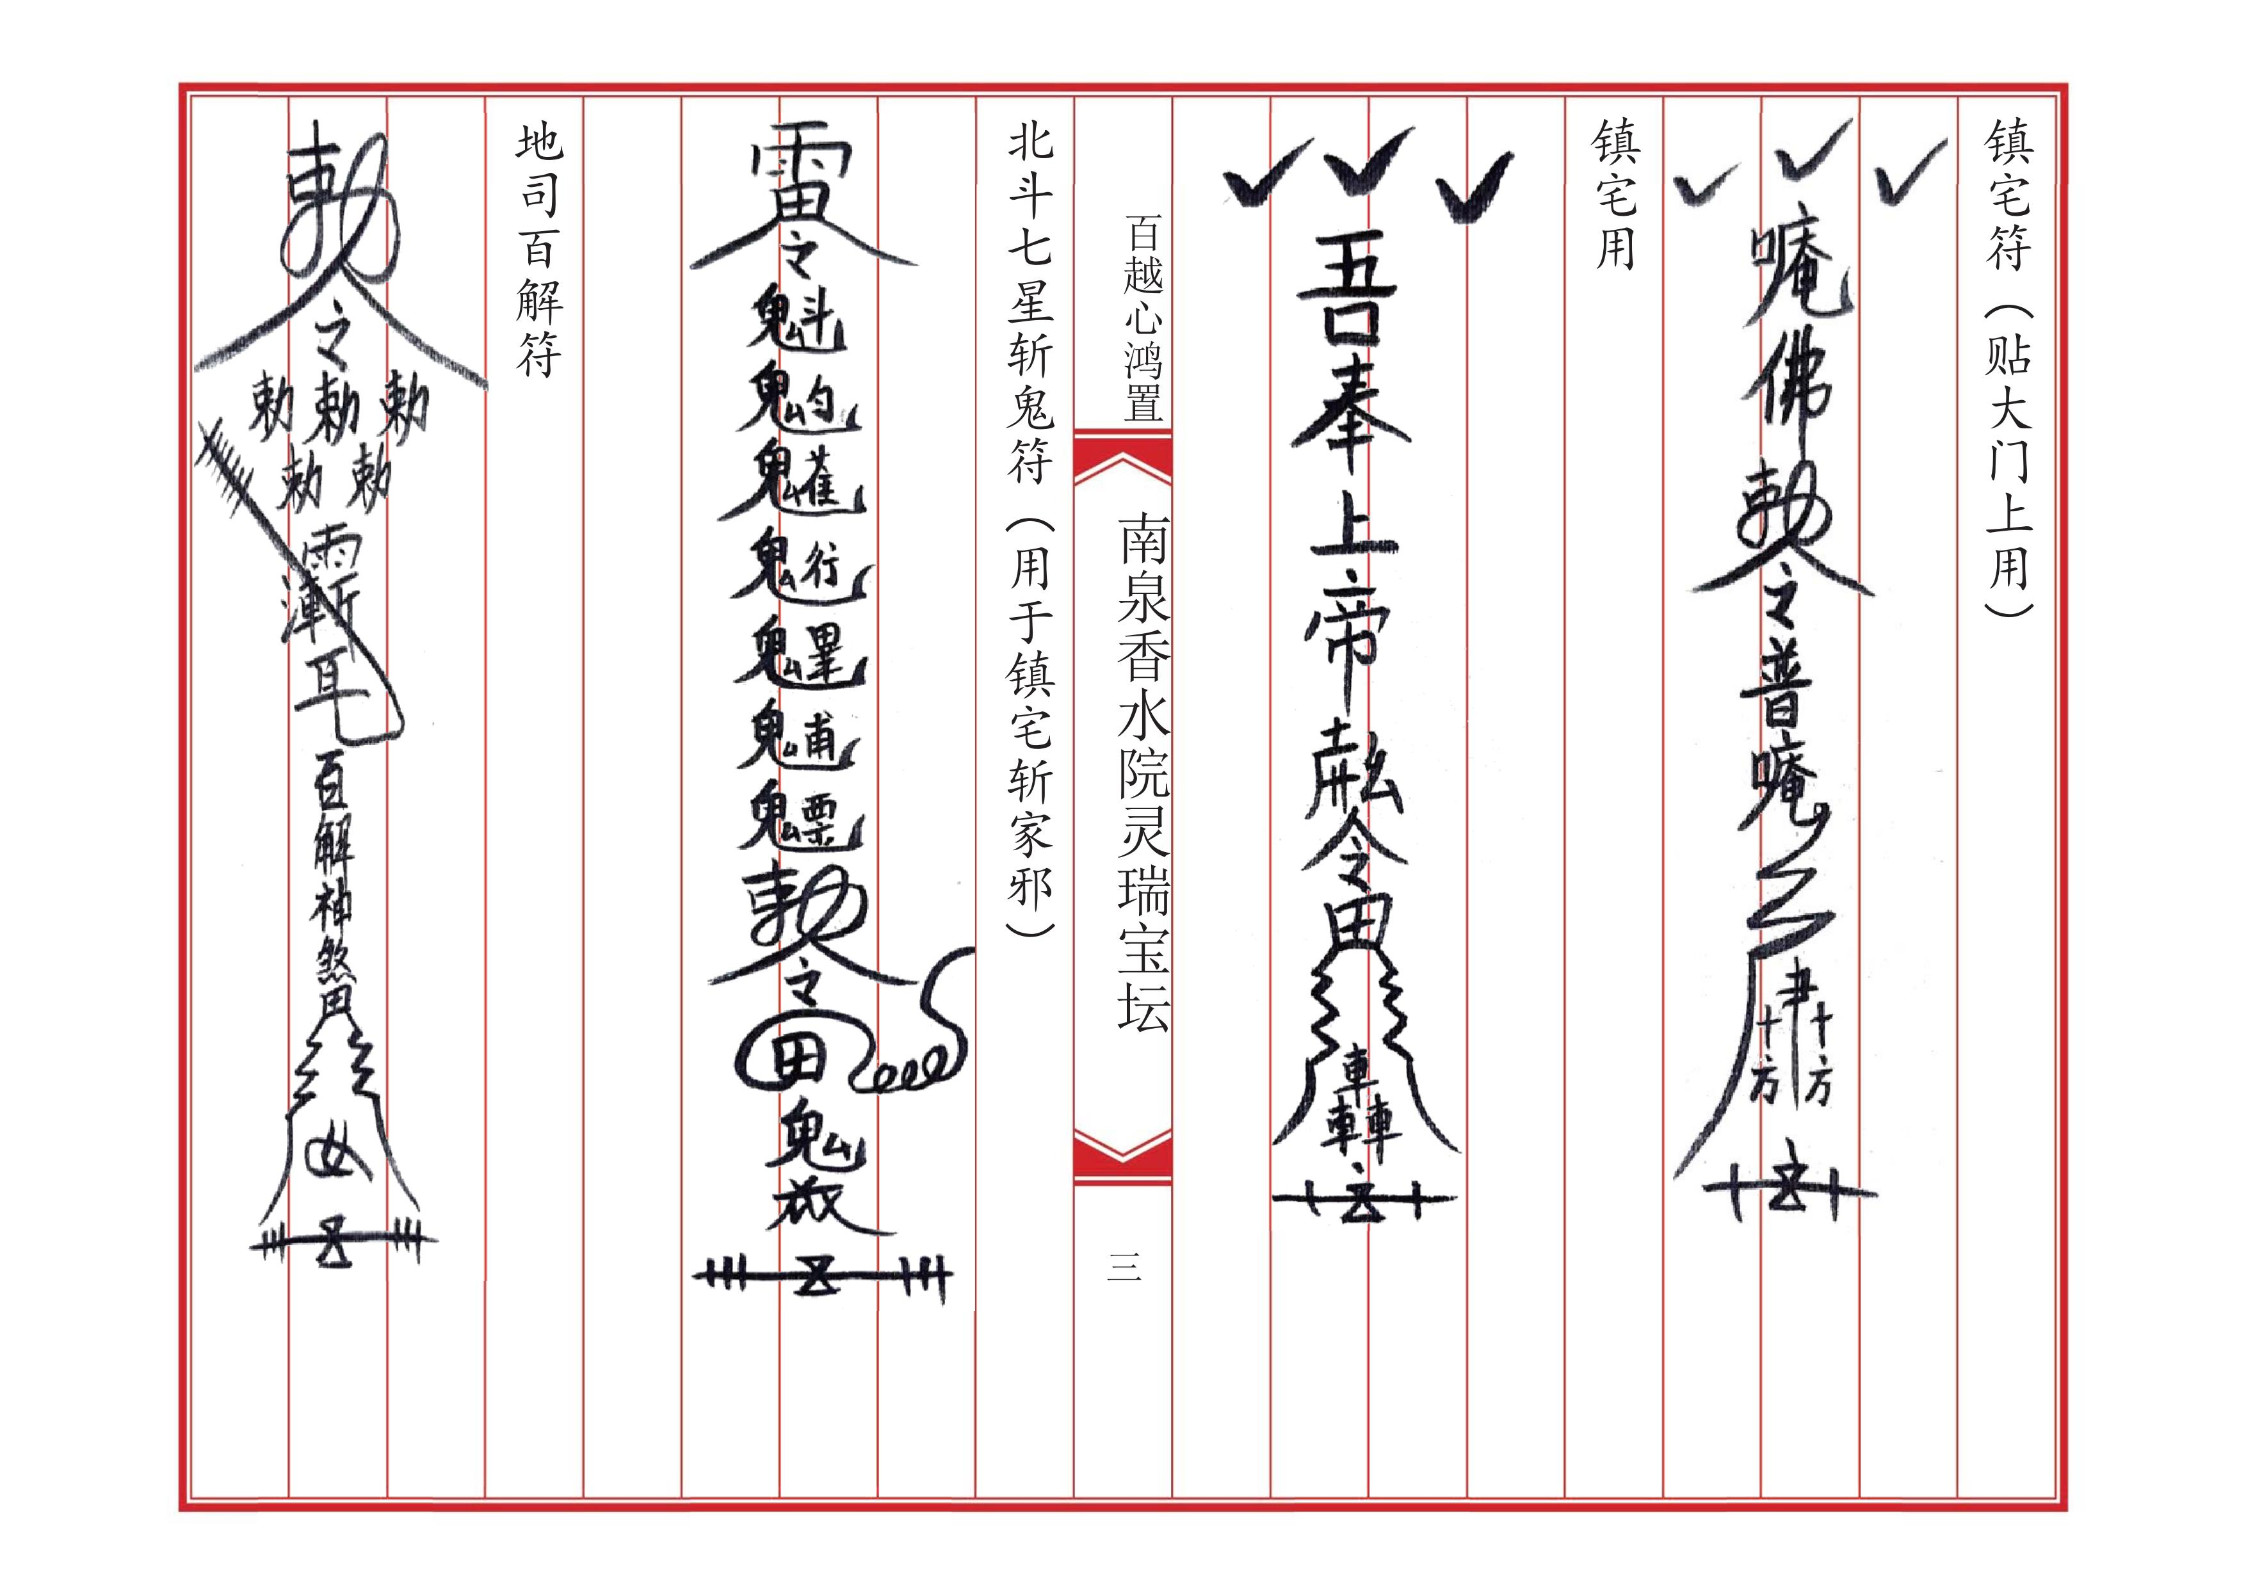 镇宅符（贴大门上用）
唵佛敕令普唵
十方
十方
镇宅用
吾奉上帝
令
車車車
百越心鸿置
南泉香水院灵瑞宝坛
三
北斗七星斩鬼符（用于镇宅斩家邪）
雷令魁魓䰢魒敕令
田
鬼
地司百解符
敕令
敕敕敕
敕敕
百解神煞